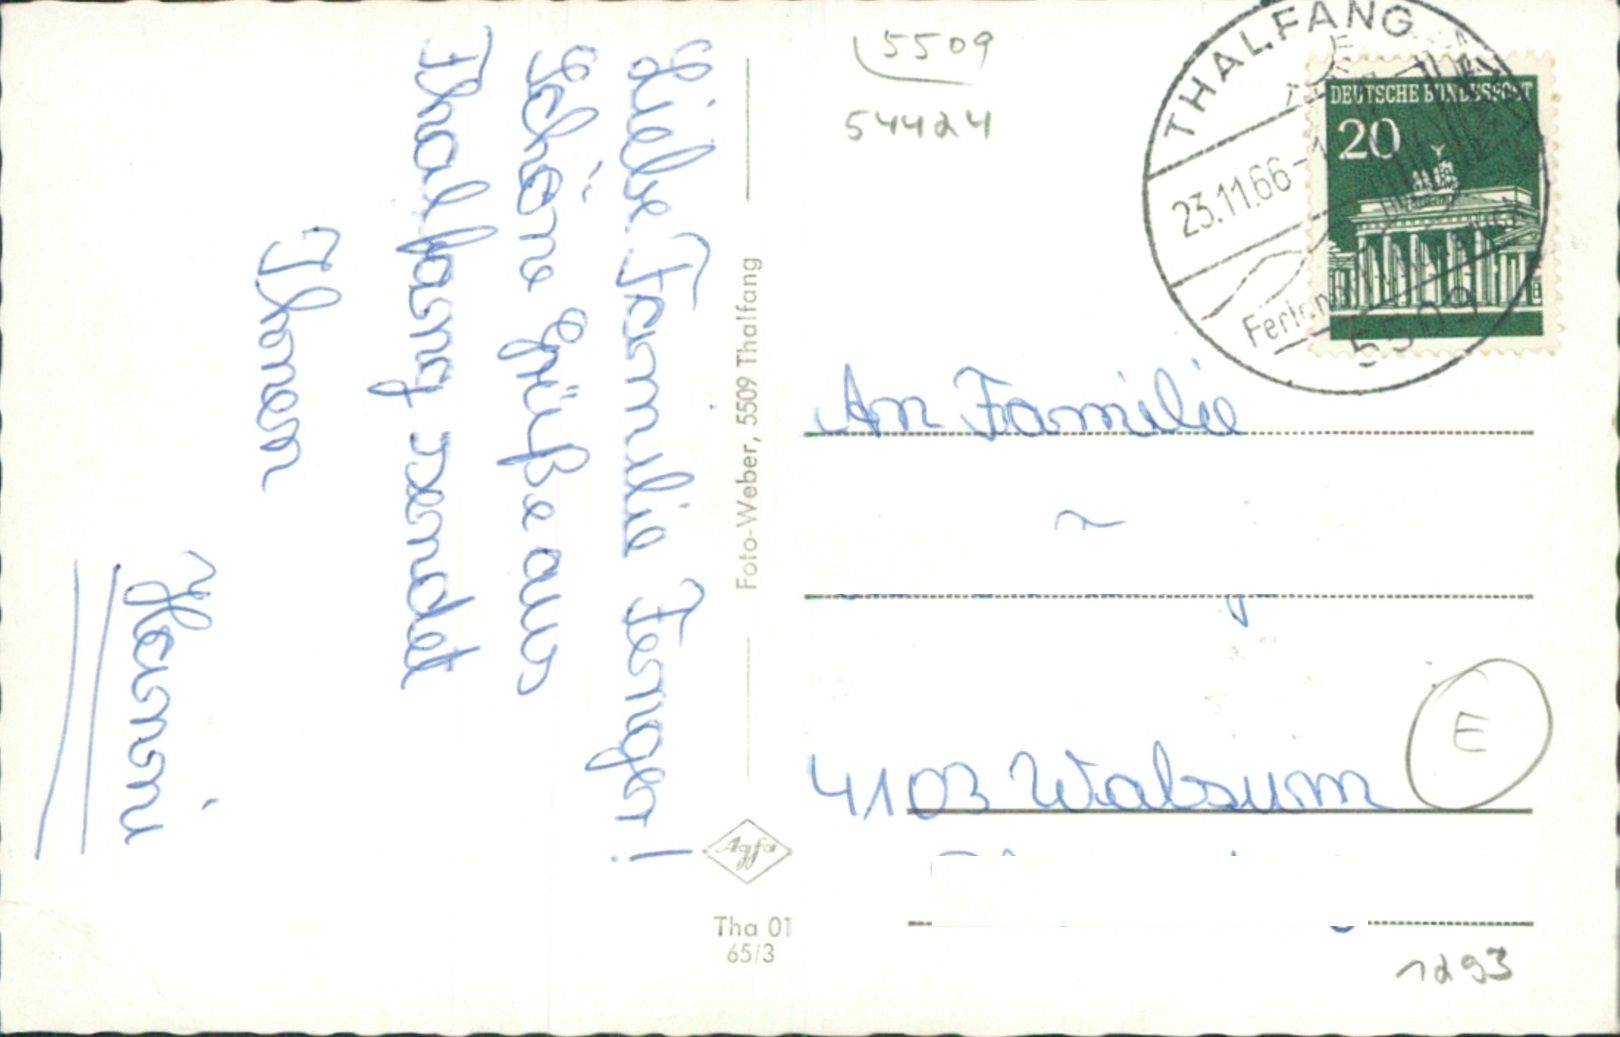 Liebe Familie Ferger!
Schöne Grüße aus
Thalfang sendet
Ihnen
Hanni
Foto-Weber, 5509 Thalfang
Agfa
Tha 01
65/3
5509
54424
THALFANG
23.11.66-1
Ferien
5509
DEUTSCHE BUNDESPOST
20
An Familie
4103 Walsum
E
1293